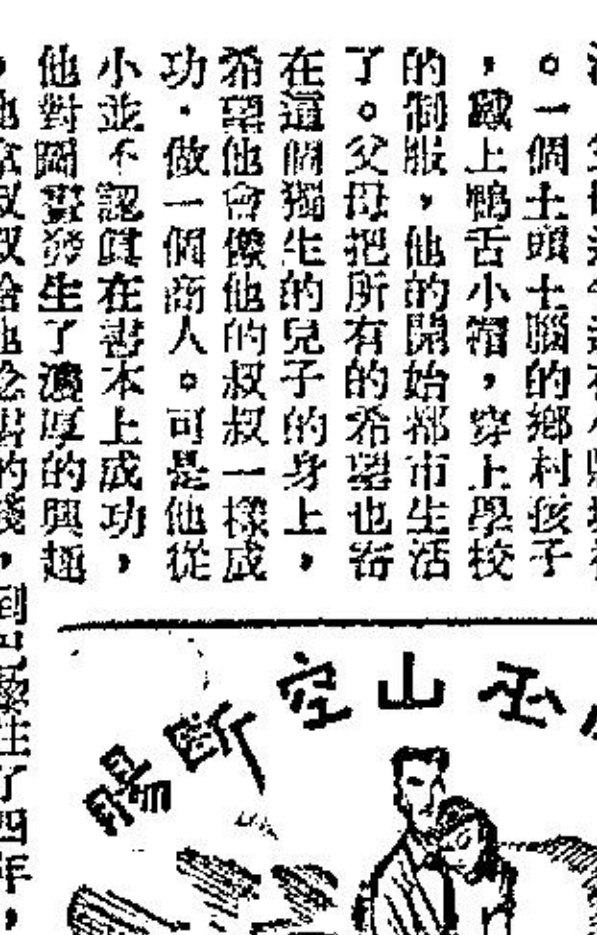 。一個土頭土腦的鄉村孩子
，戴上鴨舌小帽，穿上學校
的制服，他的開始都市生活
了。父母把所有的希望也寄
在這個獨生的兒子的身上，
希望他會像他的叔叔一樣成
功．做一個商人。可是他從
小並不認眞在書本上成功，
他對圖畫發生了濃厚的興趣
，他拿叔叔給他念書的錢，到巴黎住了四年，
巫山空斷腸